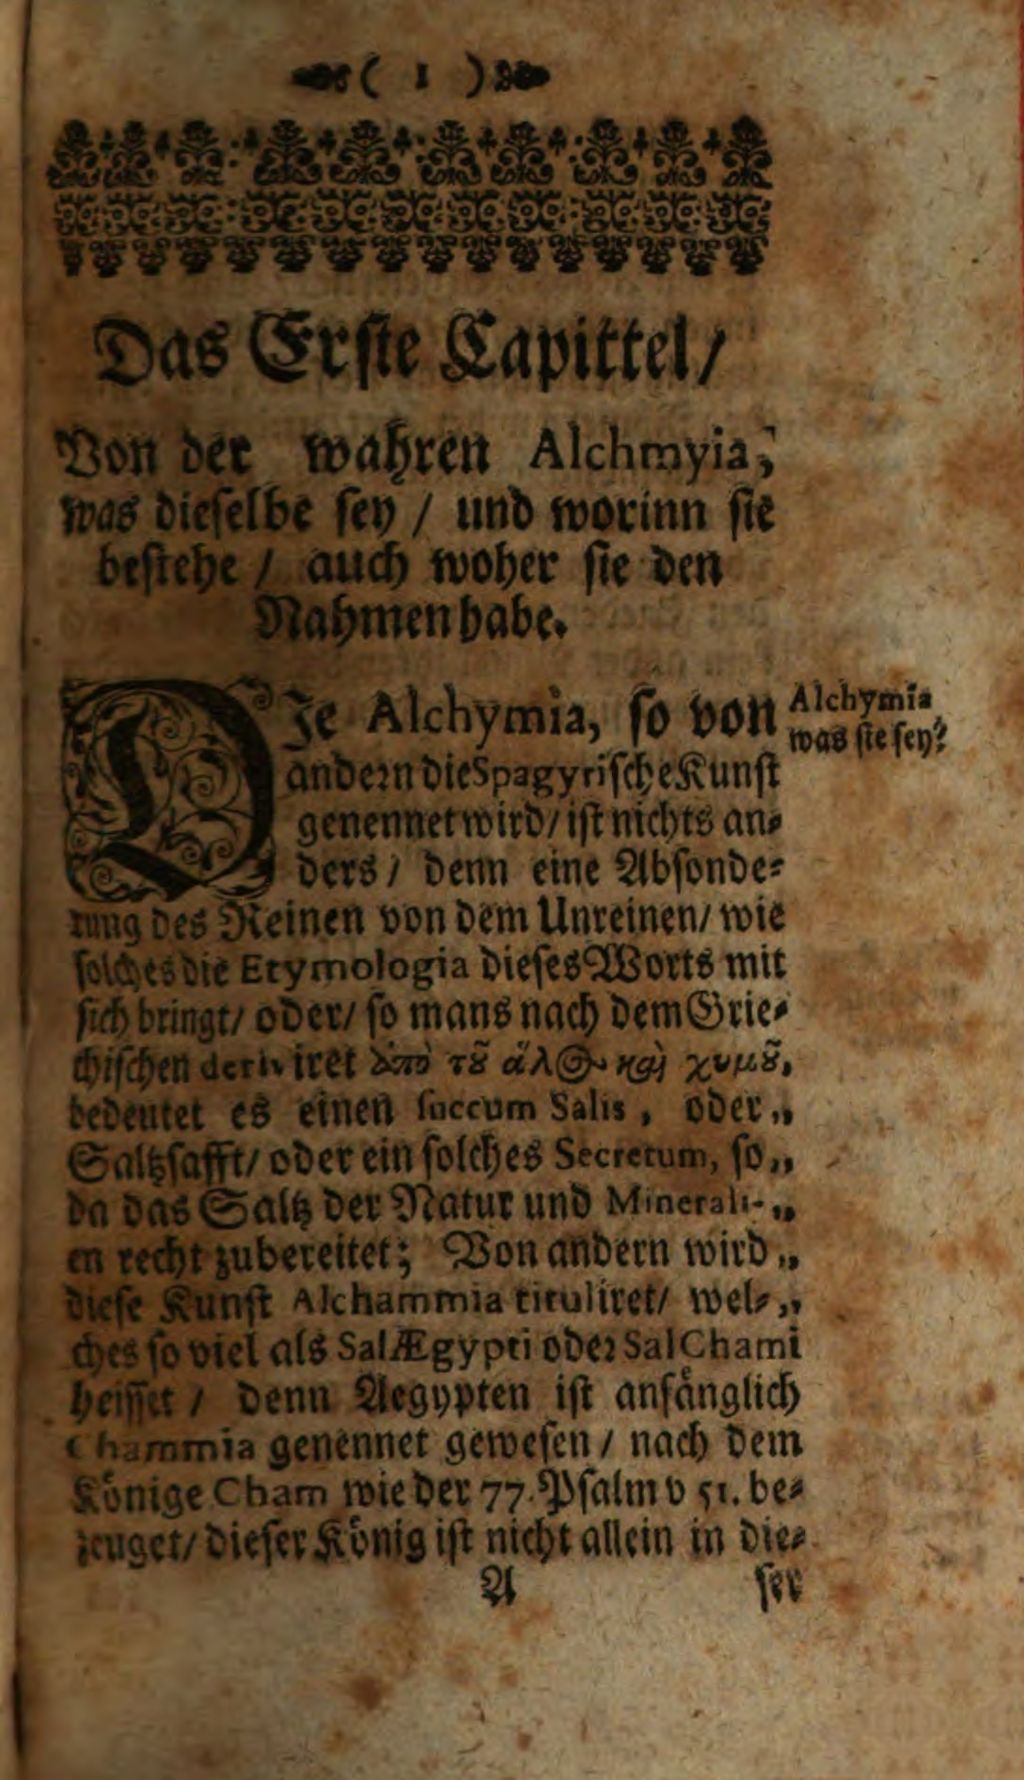 ( 1 )
Das Erste Capittel/
Von der wahren Alchmyia,
was dieselbe sey / und worinn sie
bestehe / auch woher sie den
Nahmen habe.
DJe Alchymia, so von
Alchymia
was sie sey?
andern die Spagyrische Kunst
genennet wird/ ist nichts an-
ders / denn eine Absonde-
rung des Reinen von dem Unreinen/ wie
solches die Etymologia dieses Worts mit
sich bringt/ oder/ so mans nach dem Grie-
chischen deriviret ἀπὸ τȣ̃ ἅλος καὶ χυμȣ̃,
bedeutet es einen succum Salis, oder„
Saltzsafft/ oder ein solches Secretum, so„
da das Saltz der Natur und Minerali-„
en recht zubereitet; Von andern wird„
diese Kunst Alchammia tituliret/ wel-„
ches so viel als Sal Ægypti oder Sal Chami
heisset / denn Aegypten ist anfänglich
Chammia genennet gewesen / nach dem
Könige Cham wie der 77. Psalm v 51. be-
zeuget/ dieser König ist nicht allein in die-
A
ser